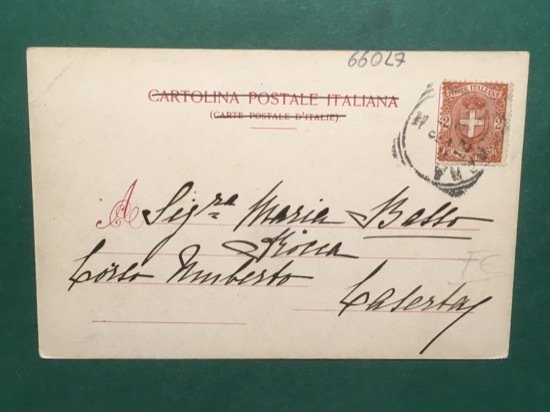 66027
CARTOLINA POSTALE ITALIANA
(CARTE POSTALE D'ITALIE)
POSTE ITALIANE
2 2
A Sigra Maria Basso
Rocca
Corso Umberto
Caserta